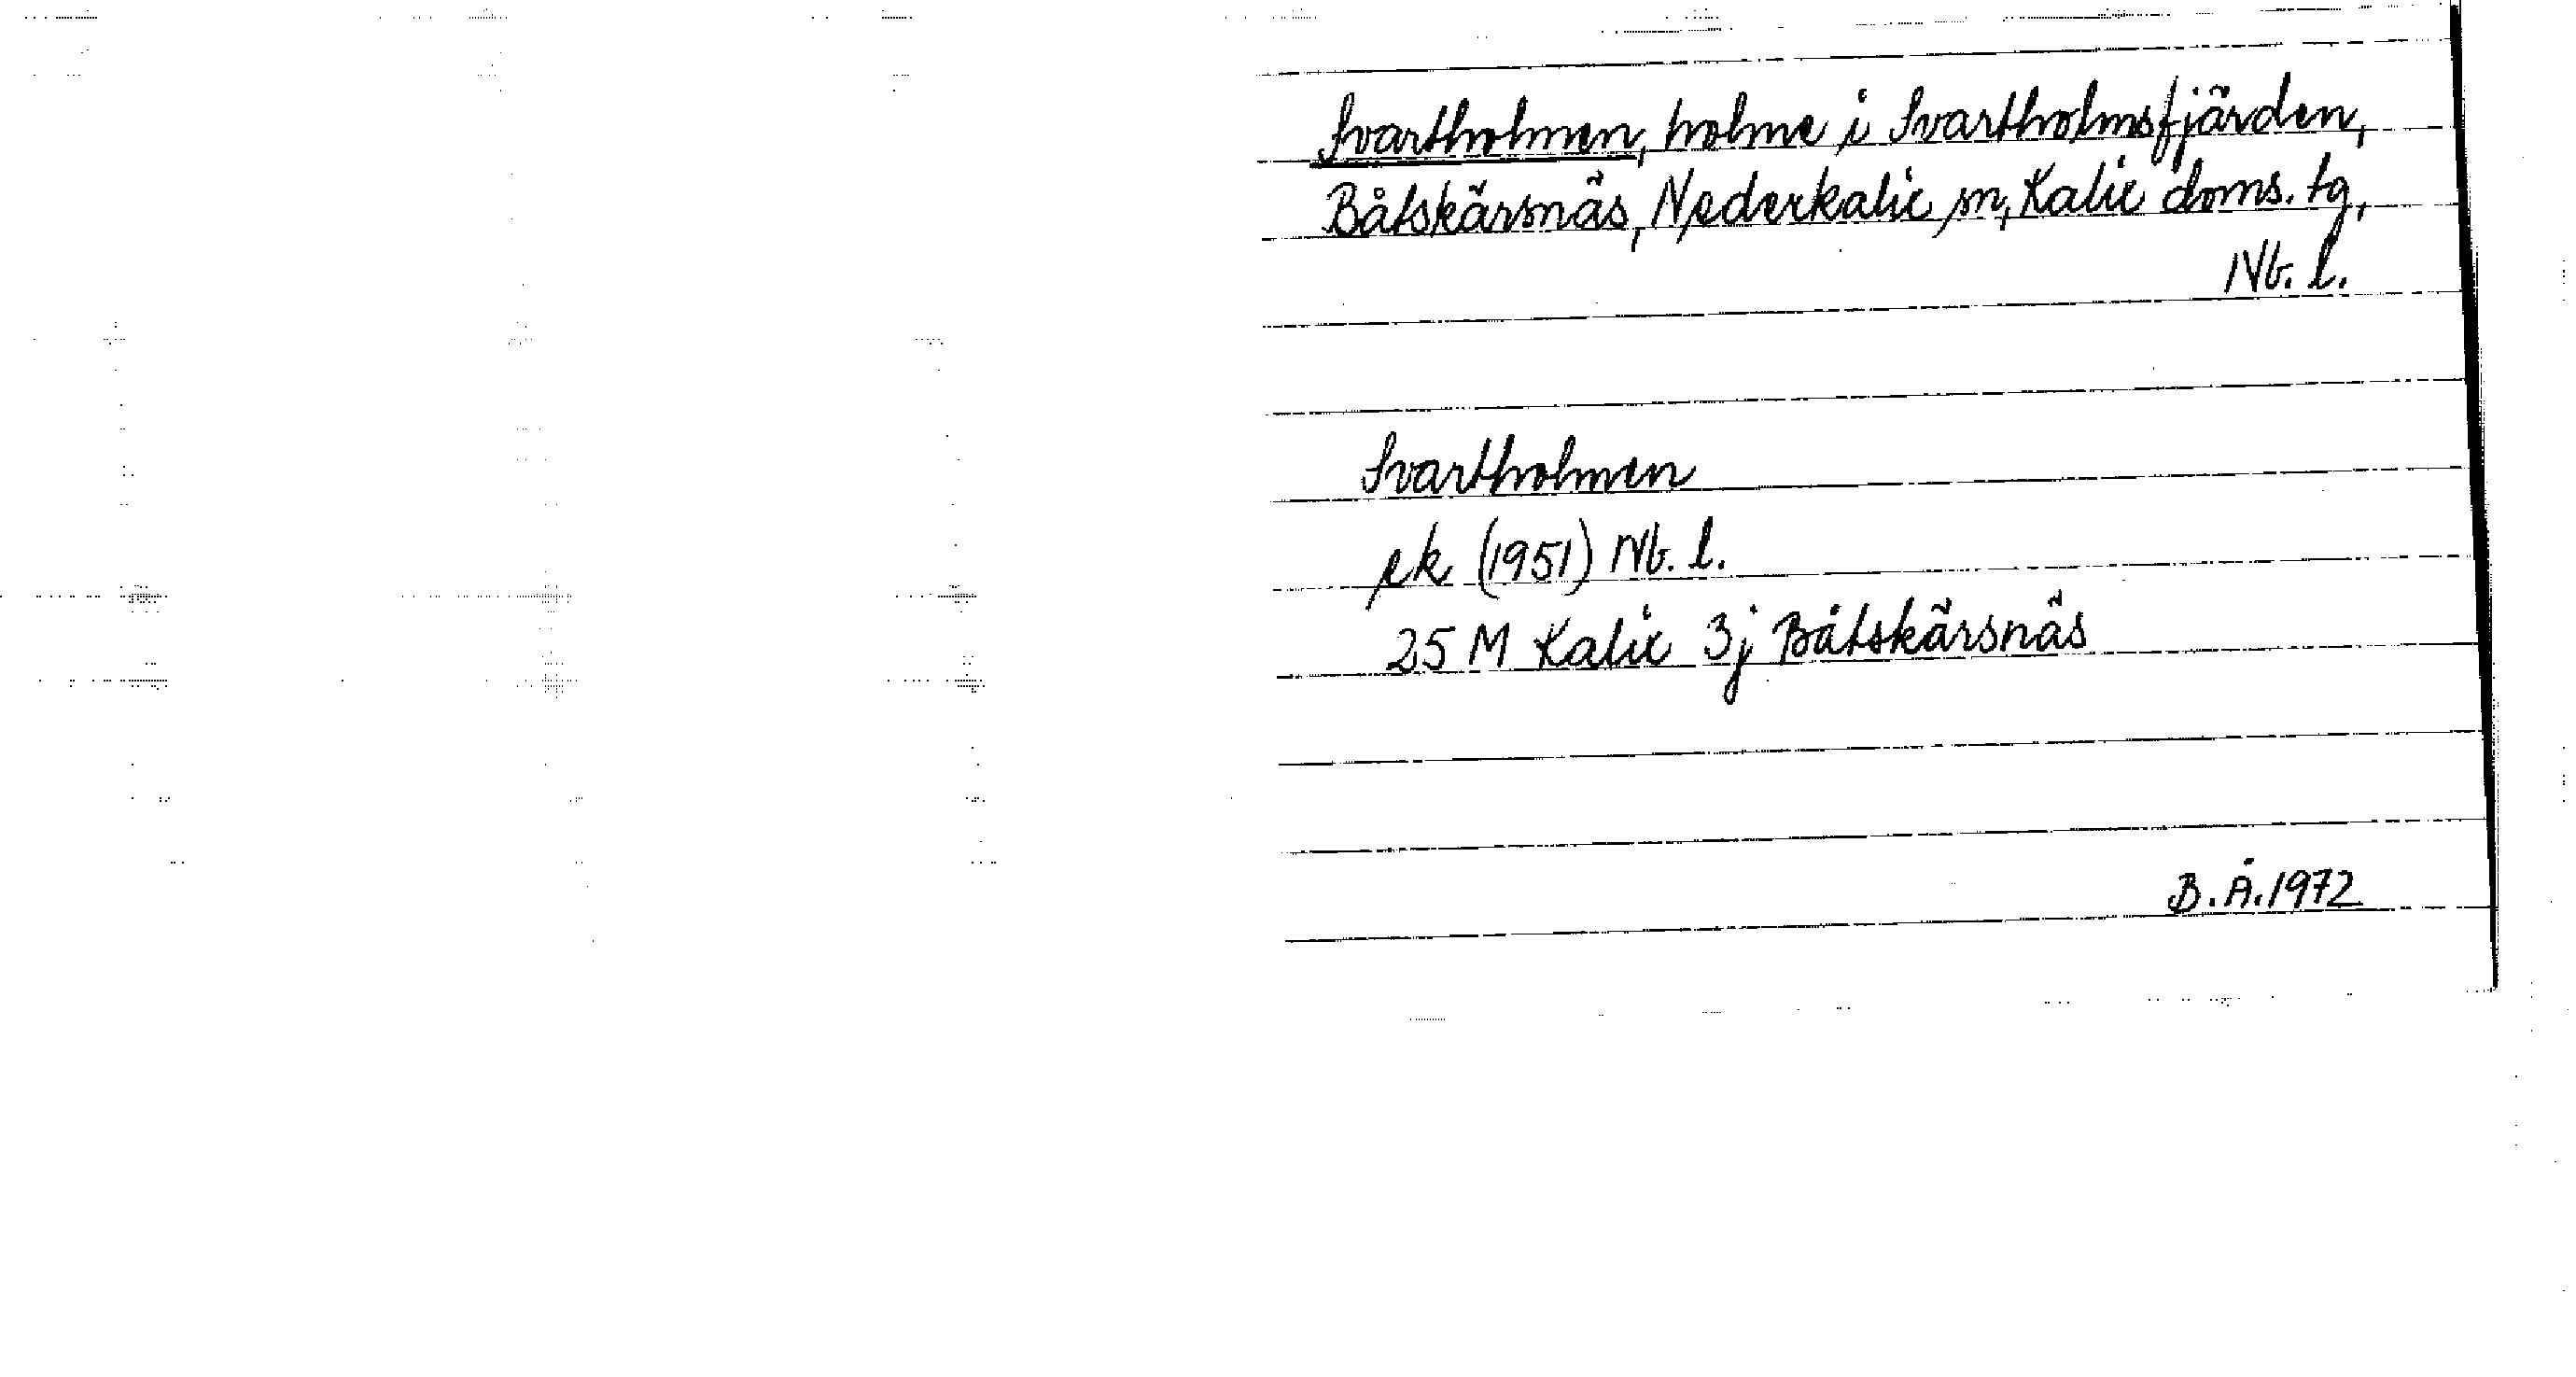 Svartholmen, holme i Svartholmsfjärden,
Båtskärsnäs, Nederkalix sn, Kalix doms. tg,
Nb. l.
Svartholmen
ek (1951) Nb. l.
25 M Kalix 3j Båtskärsnäs
B. Å. 1972